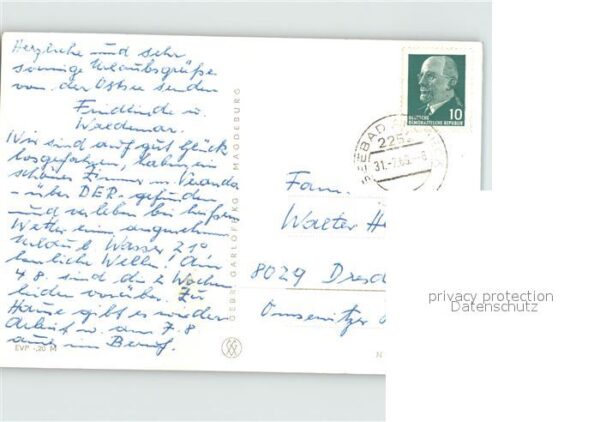 Herzliche und sehr
sonnige Urlaubsgrüße
von der Ostsee senden
Friedlinde u.
Waldemar.
Wir sind auf gut Glück
losgefahren, haben ein
schönes Zimmer m. Veranda
- über DER - gefunden
und verleben bei heißem
Wetter einen angenehmen
Urlaub Wasser 21°
herrliche Wellen! Am
4.8. sind die 2 Wochen
leider vorüber. Zu
Hause gibt es wieder
Arbeit u. am 7.8
auch im Beruf.
EVP -,20 M
GEBR. GARLOFF KG MAGDEBURG
10
DEUTSCHE
DEMOKRATISCHE REPUBLIK
SEEBAD
225
31.-7.69.-8
Fam.
Walter He
8029 Dresd
Omsewitzer
privacy protection
Datenschutz